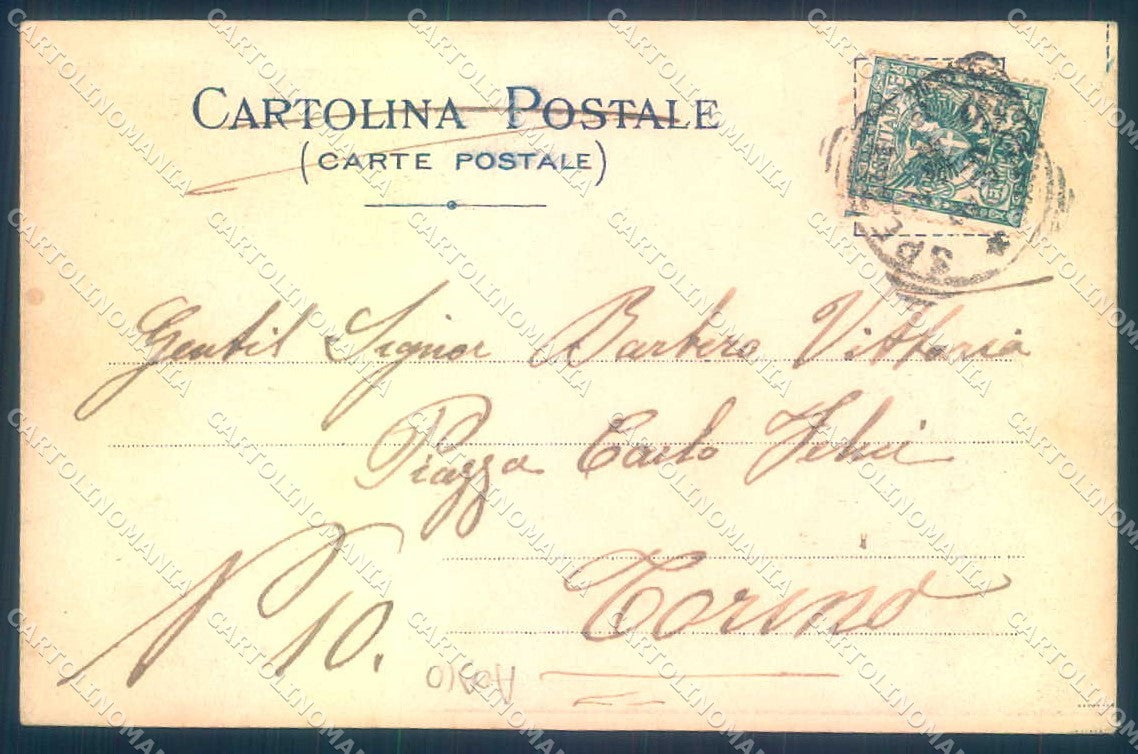 CARTOLINA POSTALE
(CARTE POSTALE)
Gentil Signor Barbero Vittorio
Piazza Carlo Felici
N° 10.
Torino
CARTOLINOMANIA